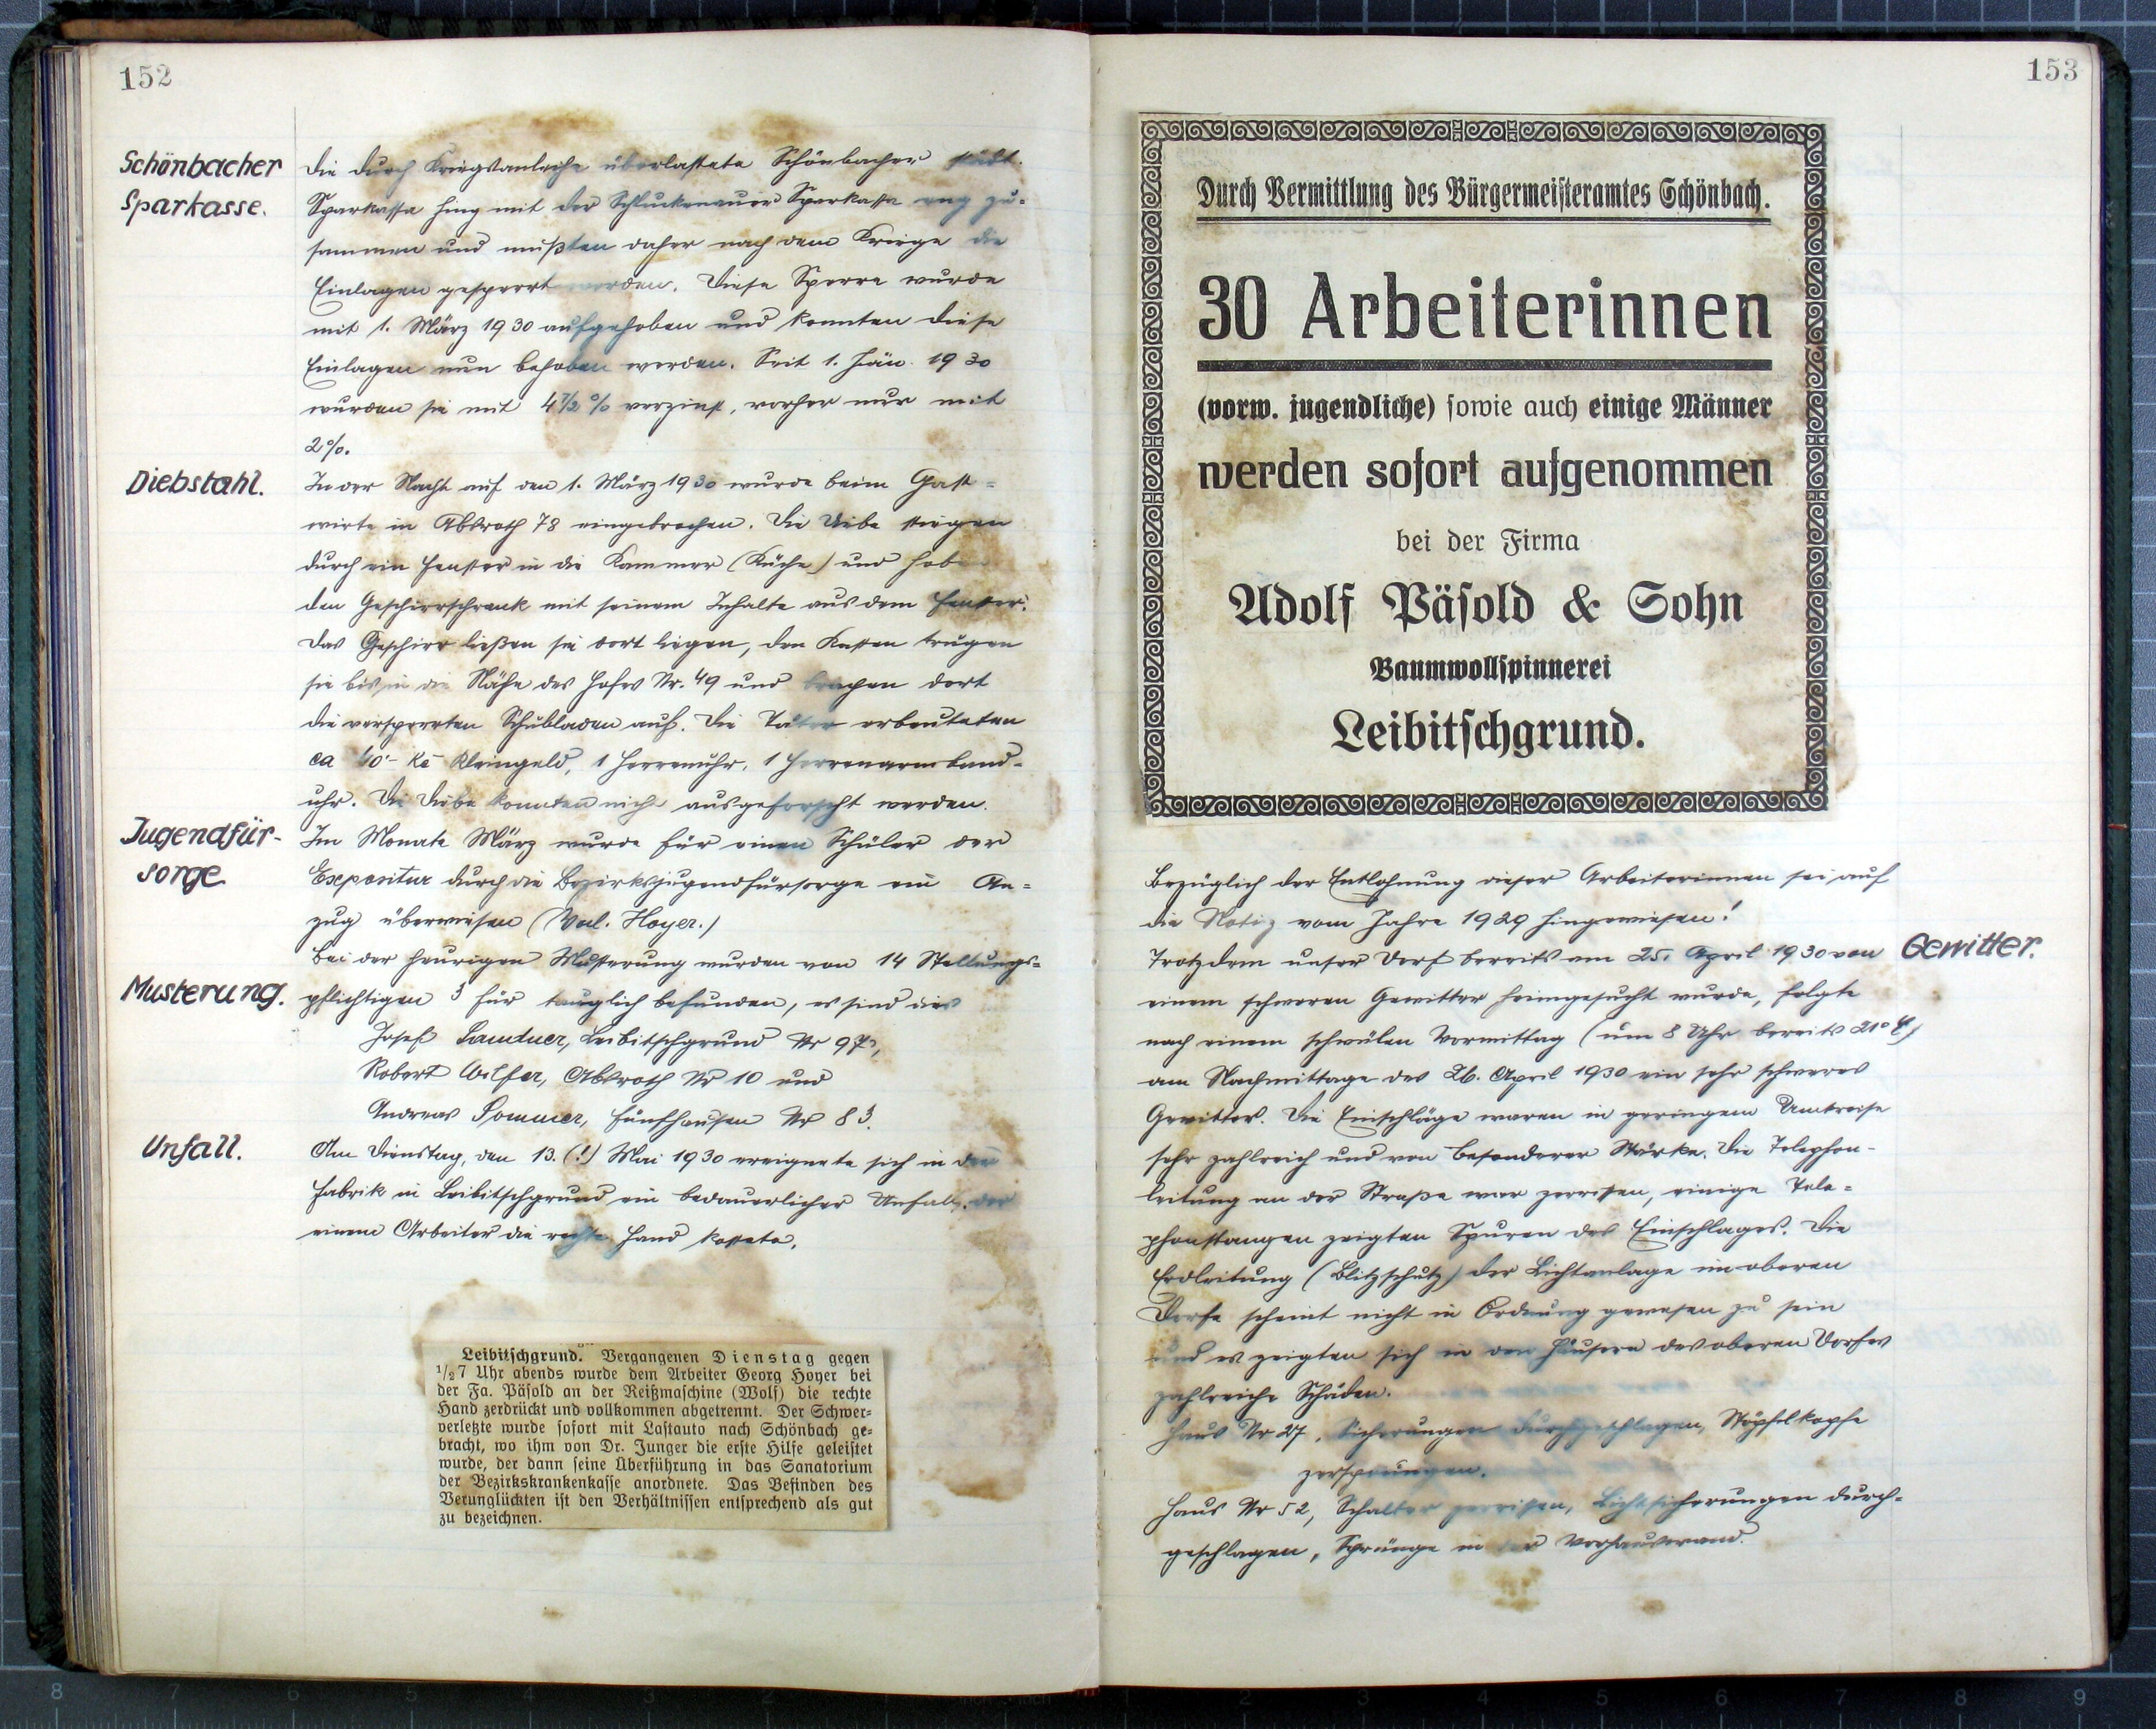 152
Schönbacher
Sparkasse.
Die durch Kriegsanleihe überlastete Schönbacher städt.
Sparkasse hing mit der Schluckenauer Sparkasse eng zu=
sammen und mußten daher nach dem Kriege die
Einlagen gesperrt werden. Diese Sperre wurde
mit 1. März 1930 aufgehoben und konnten diese
Einlagen nun behoben werden. Seit 1. Jän. 1930
wurden sie mit 4½% verzinst, vorher nur mit
2%.
Diebstahl.
In der Nacht auf den 1. März 1930 wurde beim Gast=
wirte in Absroth 78 eingebrochen. Die Diebe stiegen
durch ein Fenster in die Kammer (Küche) und hoben
den Geschirrschrank mit seinem Inhalte aus dem Fenster.
Das Geschirr ließen sie dort liegen, den Kasten trugen
sie bis in die Nähe des Hofes Nr. 49 und brachen dort
die versperrten Schubladen auf. Die Täter erbeuteten
ca 40'- Kč Kleingeld, 1 Herrenuhr, 1 Herrenarmband-
uhr. Die Diebe konnten nicht ausgeforscht werden.
Jugendfür-
sorge
Im Monate März wurde für einen Schüler der
Expositur durch die Bezirksjugendfürsorge ein An=
zug überwiesen (Val. Hoyer.)
Bei der heurigen Musterung wurden von 14 Stellungs=
Musterung.
pflichtigen 3 für tauglich befunden, es sind dies
Josef Sandner, Leibitschgrund Nr 97,
Robert Wilfer, Absroth Nr 10 und
Andreas Sommer, Fünfhausen Nr 83.
Unfall.
Am Dienstag, den 13. (!) Mai 1930 ereignete sich in der
Fabrik in Leibitschgrund ein bedauerlicher Unfall, der
einem Arbeiter die rechte Hand kostete.
Leibitschgrund. Vergangenen Dienstag gegen
1/2 7 Uhr abends wurde dem Arbeiter Georg Hoyer bei
der Fa. Päsold an der Reißmaschine (Wolf) die rechte
Hand zerdrückt und vollkommen abgetrennt. Der Schwer=
verletzte wurde sofort mit Lastauto nach Schönbach ge=
bracht, wo ihm von Dr. Junger die erste Hilfe geleistet
wurde, der dann seine Überführung in das Sanatorium
der Bezirkskrankenkasse anordnete. Das Befinden des
Verunglückten ist den Verhältnissen entsprechend als gut
zu bezeichnen.
153
Durch Vermittlung des Bürgermeisteramtes Schönbach.
30 Arbeiterinnen
(vorw. jugendliche) sowie auch einige Männer
werden sofort aufgenommen
bei der Firma
Adolf Päsold & Sohn
Baumwollspinnerei
Leibitschgrund.
Bezüglich der Entlohnung dieser Arbeiterinnen sei auf
die Notiz vom Jahre 1929 hingewiesen!
Trotzdem unser Dorf bereits am 25. April 1930 von
Gewitter.
einem schweren Gewitter heimgesucht wurde, folgte
nach einem schwülen Vormittag (um 8 Uhr bereits 21° C)
am Nachmittage des 26. April 1930 ein sehr schweres
Gewitter. Die Einschläge waren in geringem Umkreise
sehr zahlreich und von besonderer Stärke. Die Telephon-
leitung an der Straße war zerrissen, einige Tele=
phonstangen zeigten Spuren des Einschlages. Die
Erdleitung (Blitzschutz) der Lichtanlage im oberen
Dorfe scheint nicht in Ordnung gewesen zu sein
und es zeigten sich in den Häusern des oberen Dorfes
zahlreiche Schäden.
Haus Nr 27, Sicherungen durchgeschlagen, Stöpselkopfe
zersprungen.
Haus Nr 52, Schalter zerrissen, Lichtsicherungen durch=
geschlagen, Sprünge in der Vorhauswand.
8 7 6 5 4 3 2 1 2 3 4 5 6 7 8 9